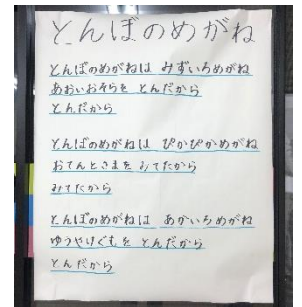 とんぼのめがね
とんぼのめがねは みずいろめがね
あおいおそらを とんだから
とんだから
とんぼのめがねは ぴかぴかめがね
おてんとさまを みてたから
みてたから
とんぼのめがねは あかいろめがね
ゆうやけぐもを とんだから
とんだから